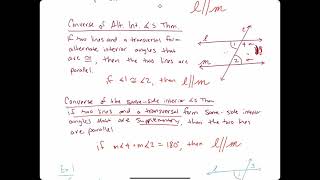 l//m
Converse of Alt. Int. ∠s Thm.
if two lines and a transversal form
alternate interior angles that
are ≅, then the two lines are
parallel.
if ∠1 ≅ ∠2, then l//m
l
m
1
4
2
Converse of the same-side interior ∠s Thm
if two lines and a transversal form same-side interior
angles that are supplementary, then the two lines
are parallel
if m∠4 + m∠2 = 180°, then l//m
Ex. 1
l
3